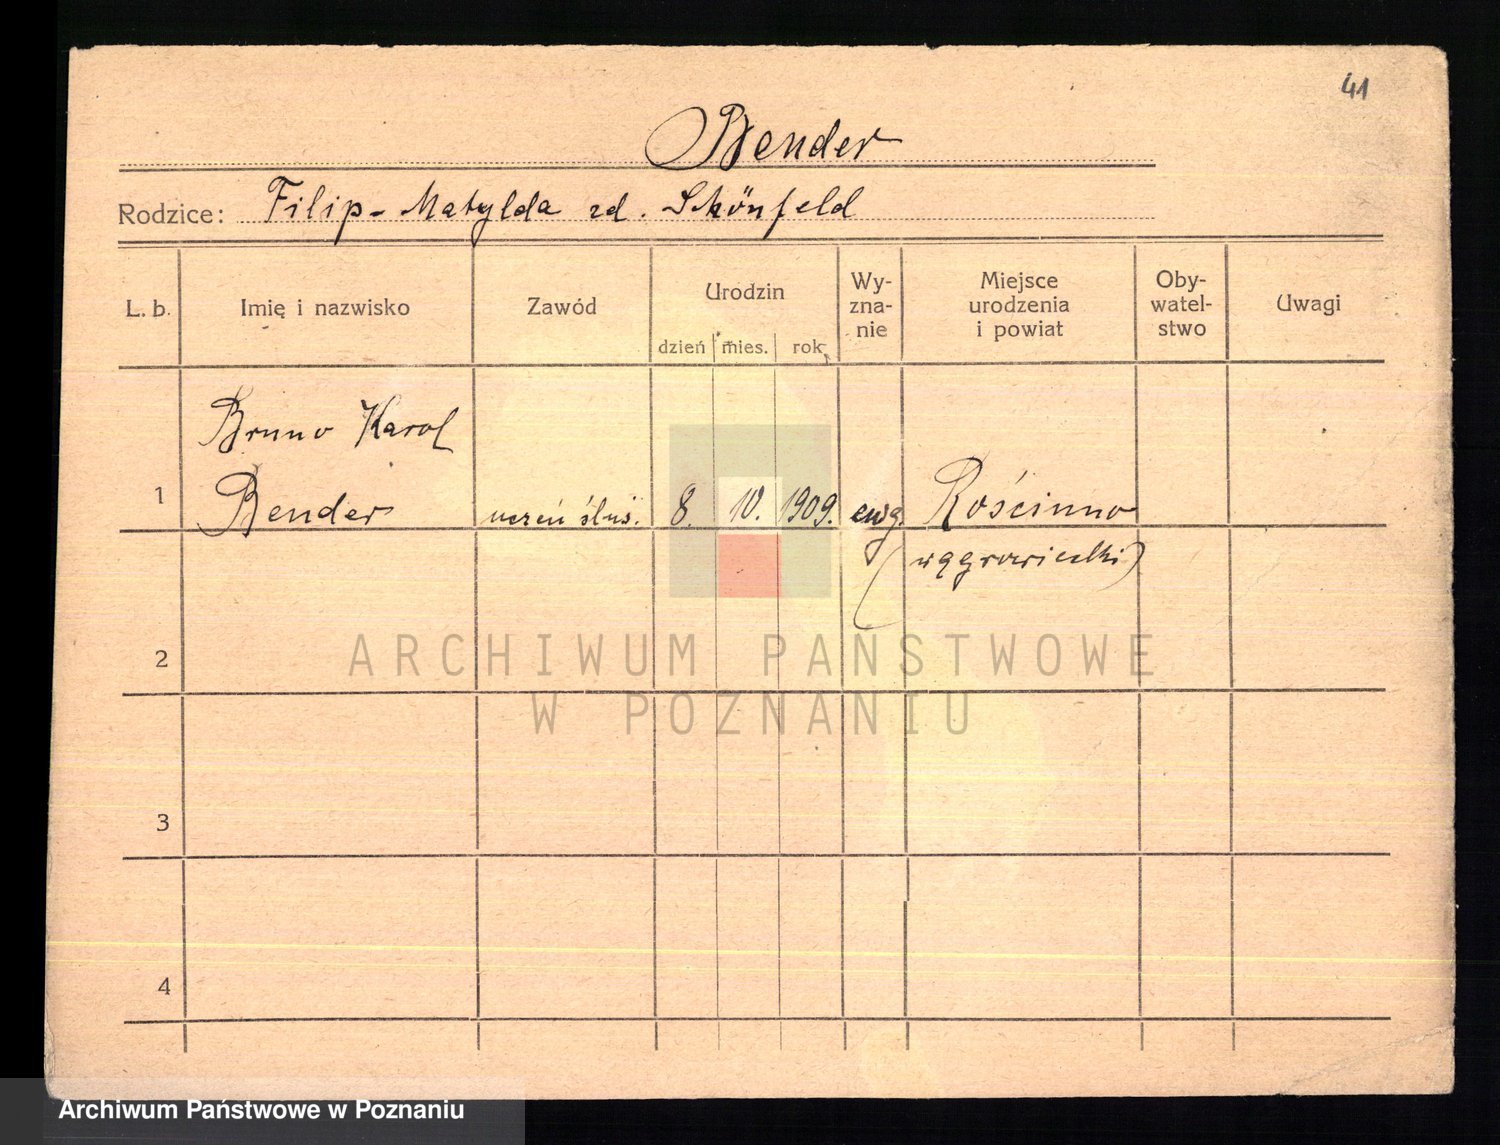 41
Bender
Rodzice: Filip - Matylda zd. Schönfeld
L. b.
Imię i nazwisko
Zawód
Urodzin
dzień
mies.
rok
Wy-
zna-
nie
Miejsce
urodzenia
i powiat
Oby-
watel-
stwo
Uwagi
Bruno Karol
1 Bender uczeń ślus. 8. 10. 1909. ewg. Rościnno
(wągrowiecki)
2
3
4
ARCHIWUM PAŃSTWOWE
W POZNANIU
Archiwum Państwowe w Poznaniu